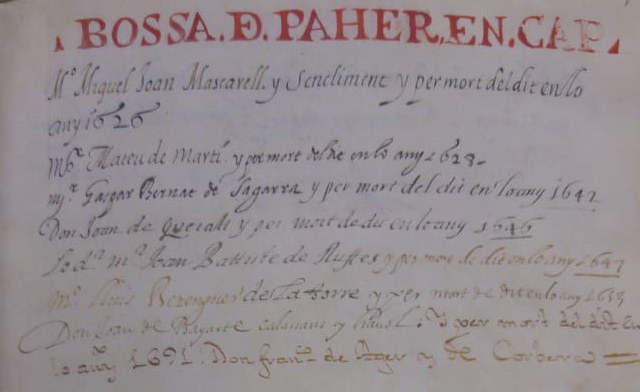 BOSSA. Đ. PAHER. EN. CAP
Mº Miquel Joan Mascarell y Sentliment y per mort del dit en lo
any 1626
Mateu de Martí y per mort del dit en lo any 1628
Gaspar Bernat de Sagarra y per mort del dit en lo any 1642
Don Joan de Queralt y per mort de dit en lo any 1646
Joan Battiste de y per mor de dit en lo any 1647
Mº Lluis Berenguer de Latorre y per mort de dit en lo any
Don Joan de Bayarte Calasans y . Y per mort del dit En
lo añy 1691. Don franᶜ. de Ager y de Corbera